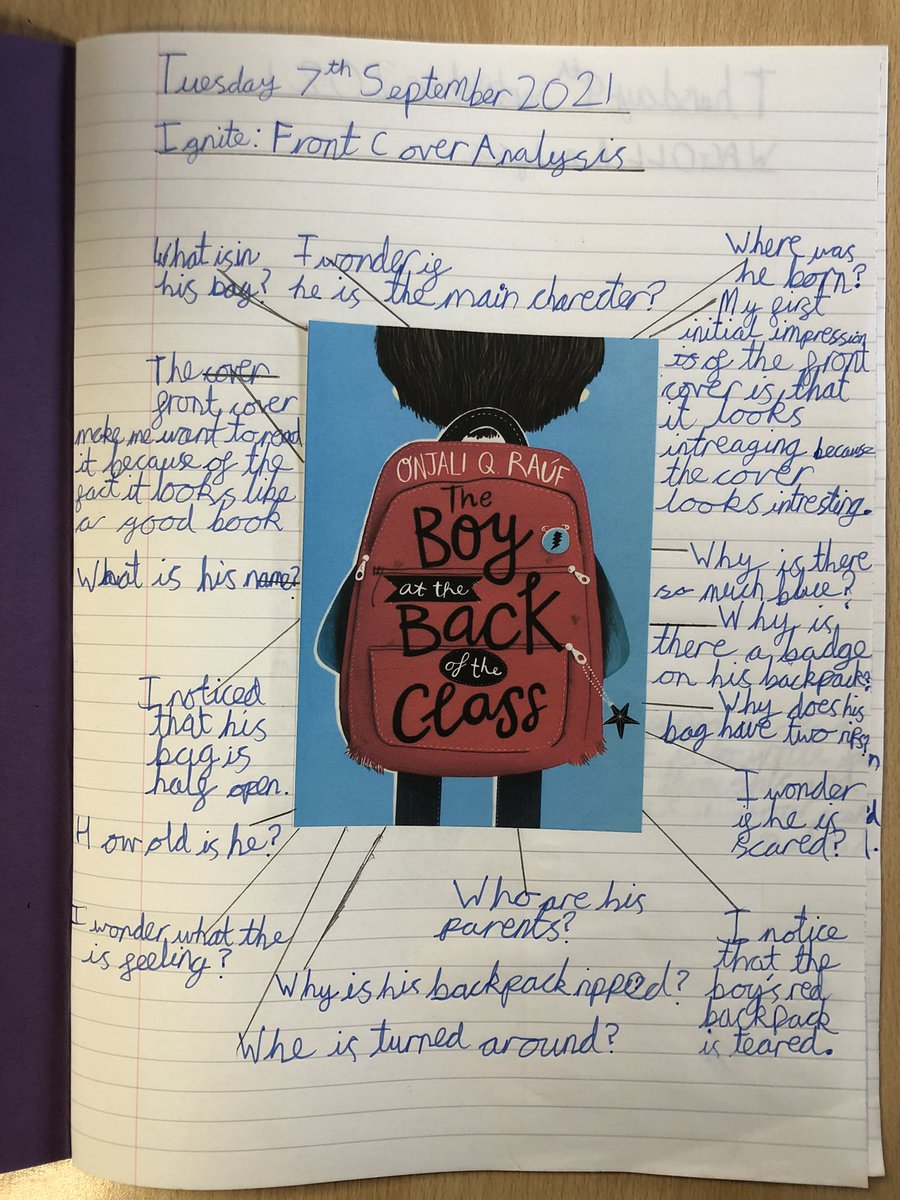 Tuesday 7th September 2021
Ignite: Front Cover Analysis
What is in
his bag?
I wonder if
he is the main charecter?
Where was
he born?
My first
initial impression
is of the front
cover is, that
it looks
intreaging because
the cover
looks intresting.
The cover
front cover
make me want to read
it because of the
fact it looks like
a good book
What is his name?
I noticed
that his
bag is
half open.
How old is he?
I wonder what the
is feeling?
ONJALI Q. RAÚF
The
Boy
at the
Back
of the
Class
Why is there
so much blue?
Why is
there a badge
on his backpack?
Why does his
bag have two rips?
I wonder
if he is
scared?
Who are his
parents?
Why is his backpack ripped?
Whe is turned around?
I notice
that the
boy's red
backpack
is teared.